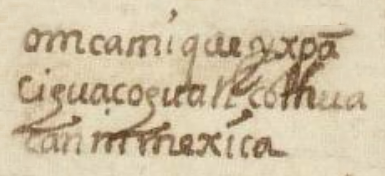 omcamique yxpā
ciguacoguatl colhua
can in mexica